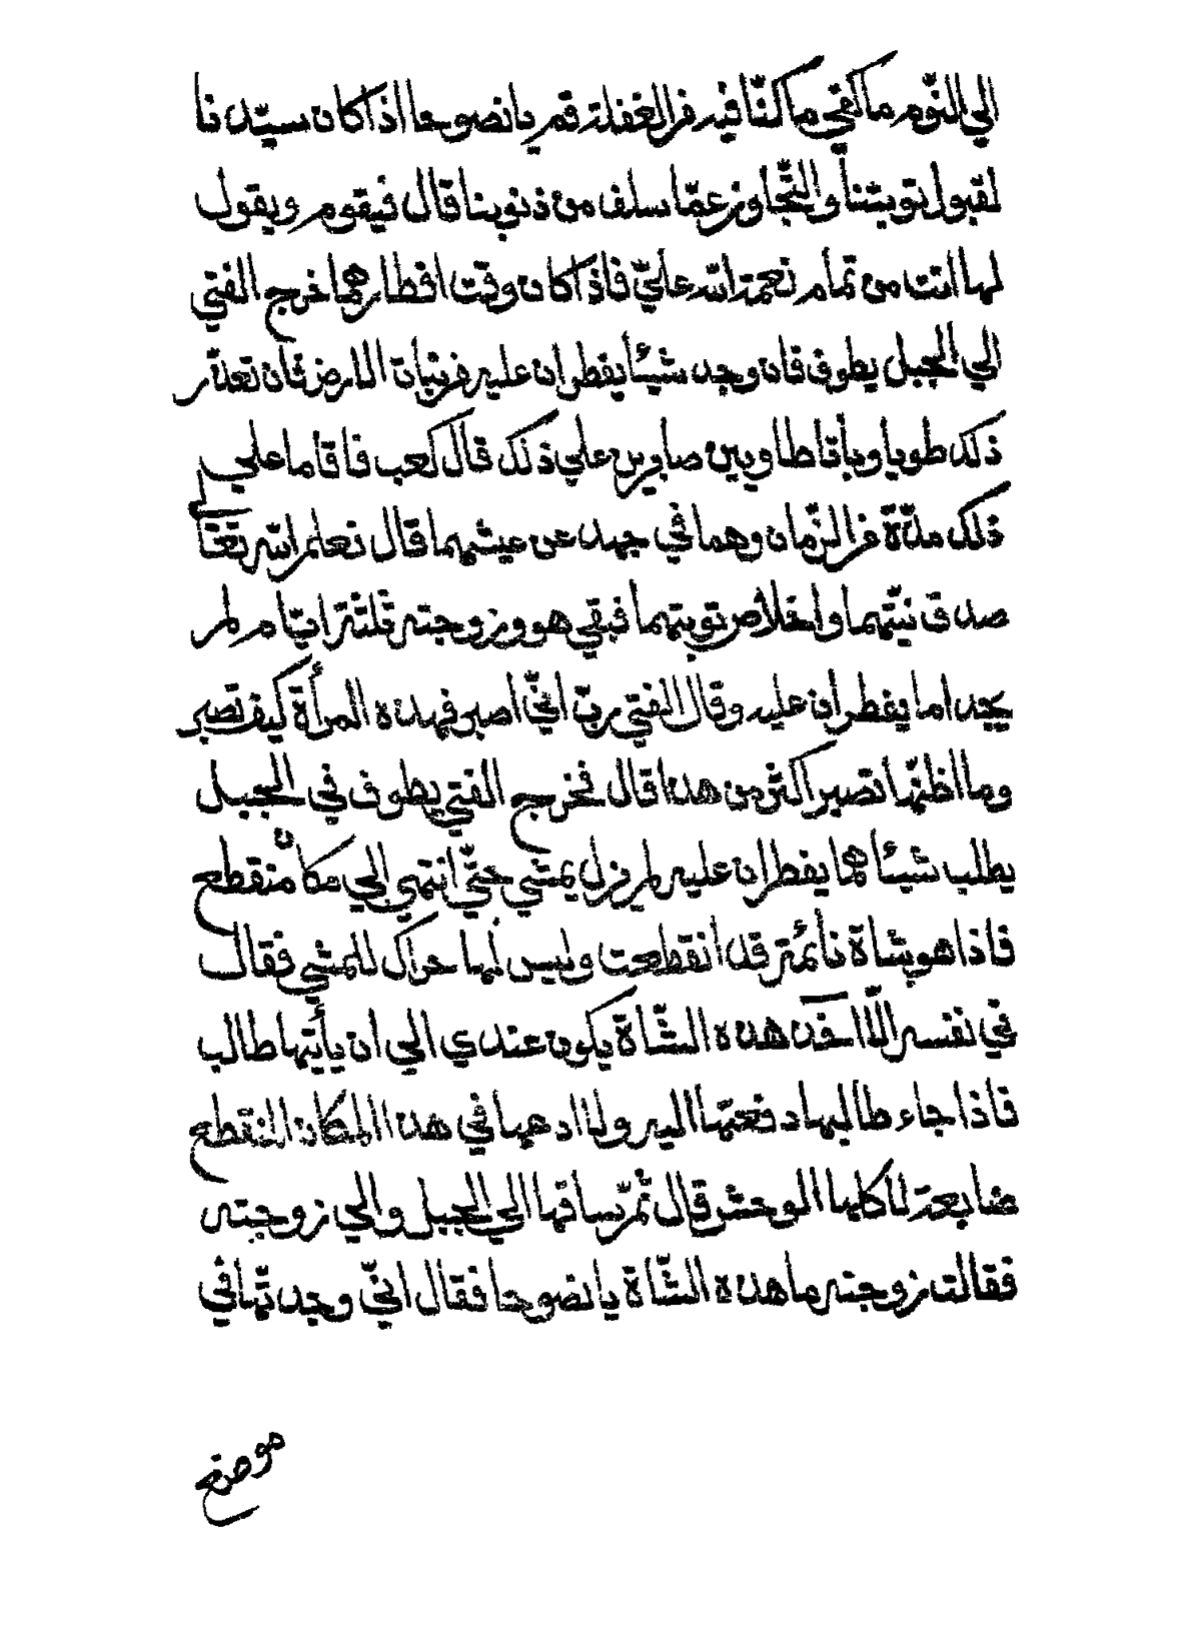 الي النّوم ما كفي ما كنّا فيه من الغفلة قم يا نصوحا اذا كان سيّدنا
لقبول توبتنا والتّجاوز عمّا سلف من ذنوبنا قال فيقوم ويقول
لها انت من تمام نعمة الله عليّ فاذا كان وقت افطارهما خرج الفتي
الي الجبل يطوف فان وجد شيئا يفطران عليه من نبات الارض فان تعذّر
ذلك طويا وباتا طاويين صابرين علي ذلك قال كعب فاقاما علي
ذلك مدّة من الزّمان وهما في جهد عن عيشهما قال تعلم الله تعالي
صدق نيّتهما واخلاص توبتهما فبقي هو وزوجته ثلثة ايّام لم
يجد اما يفطران عليه وقال الفتي ربّ انّي اصبر فهذه المرأة كيف تصبر
وما اظنّها تصبر اكثر من هذا قال فخرج الفتي يطوف في الجبل
يطلب شيئا مما يفطران عليه لم يزل يمشي حتّي انتهي الي مكان منقطع
فاذا هو بشاة نائمة قد انقطعت وليس لها حراك للمشي فقال
في نفسه الّا آخذ هذه الشّاة يكون عندي الي ان يأتيها طالب
فاذا جاء طالبها دفعتها اليه ولا ادعها في هذا المكان المنقطع
ضايعة لاكلها الوحش قال ثمّ ساقها الي الجبل والي زوجته
فقالت زوجته ما هذه الشّاة يا نصوحا فقال انّي وجدتّها في
موضع